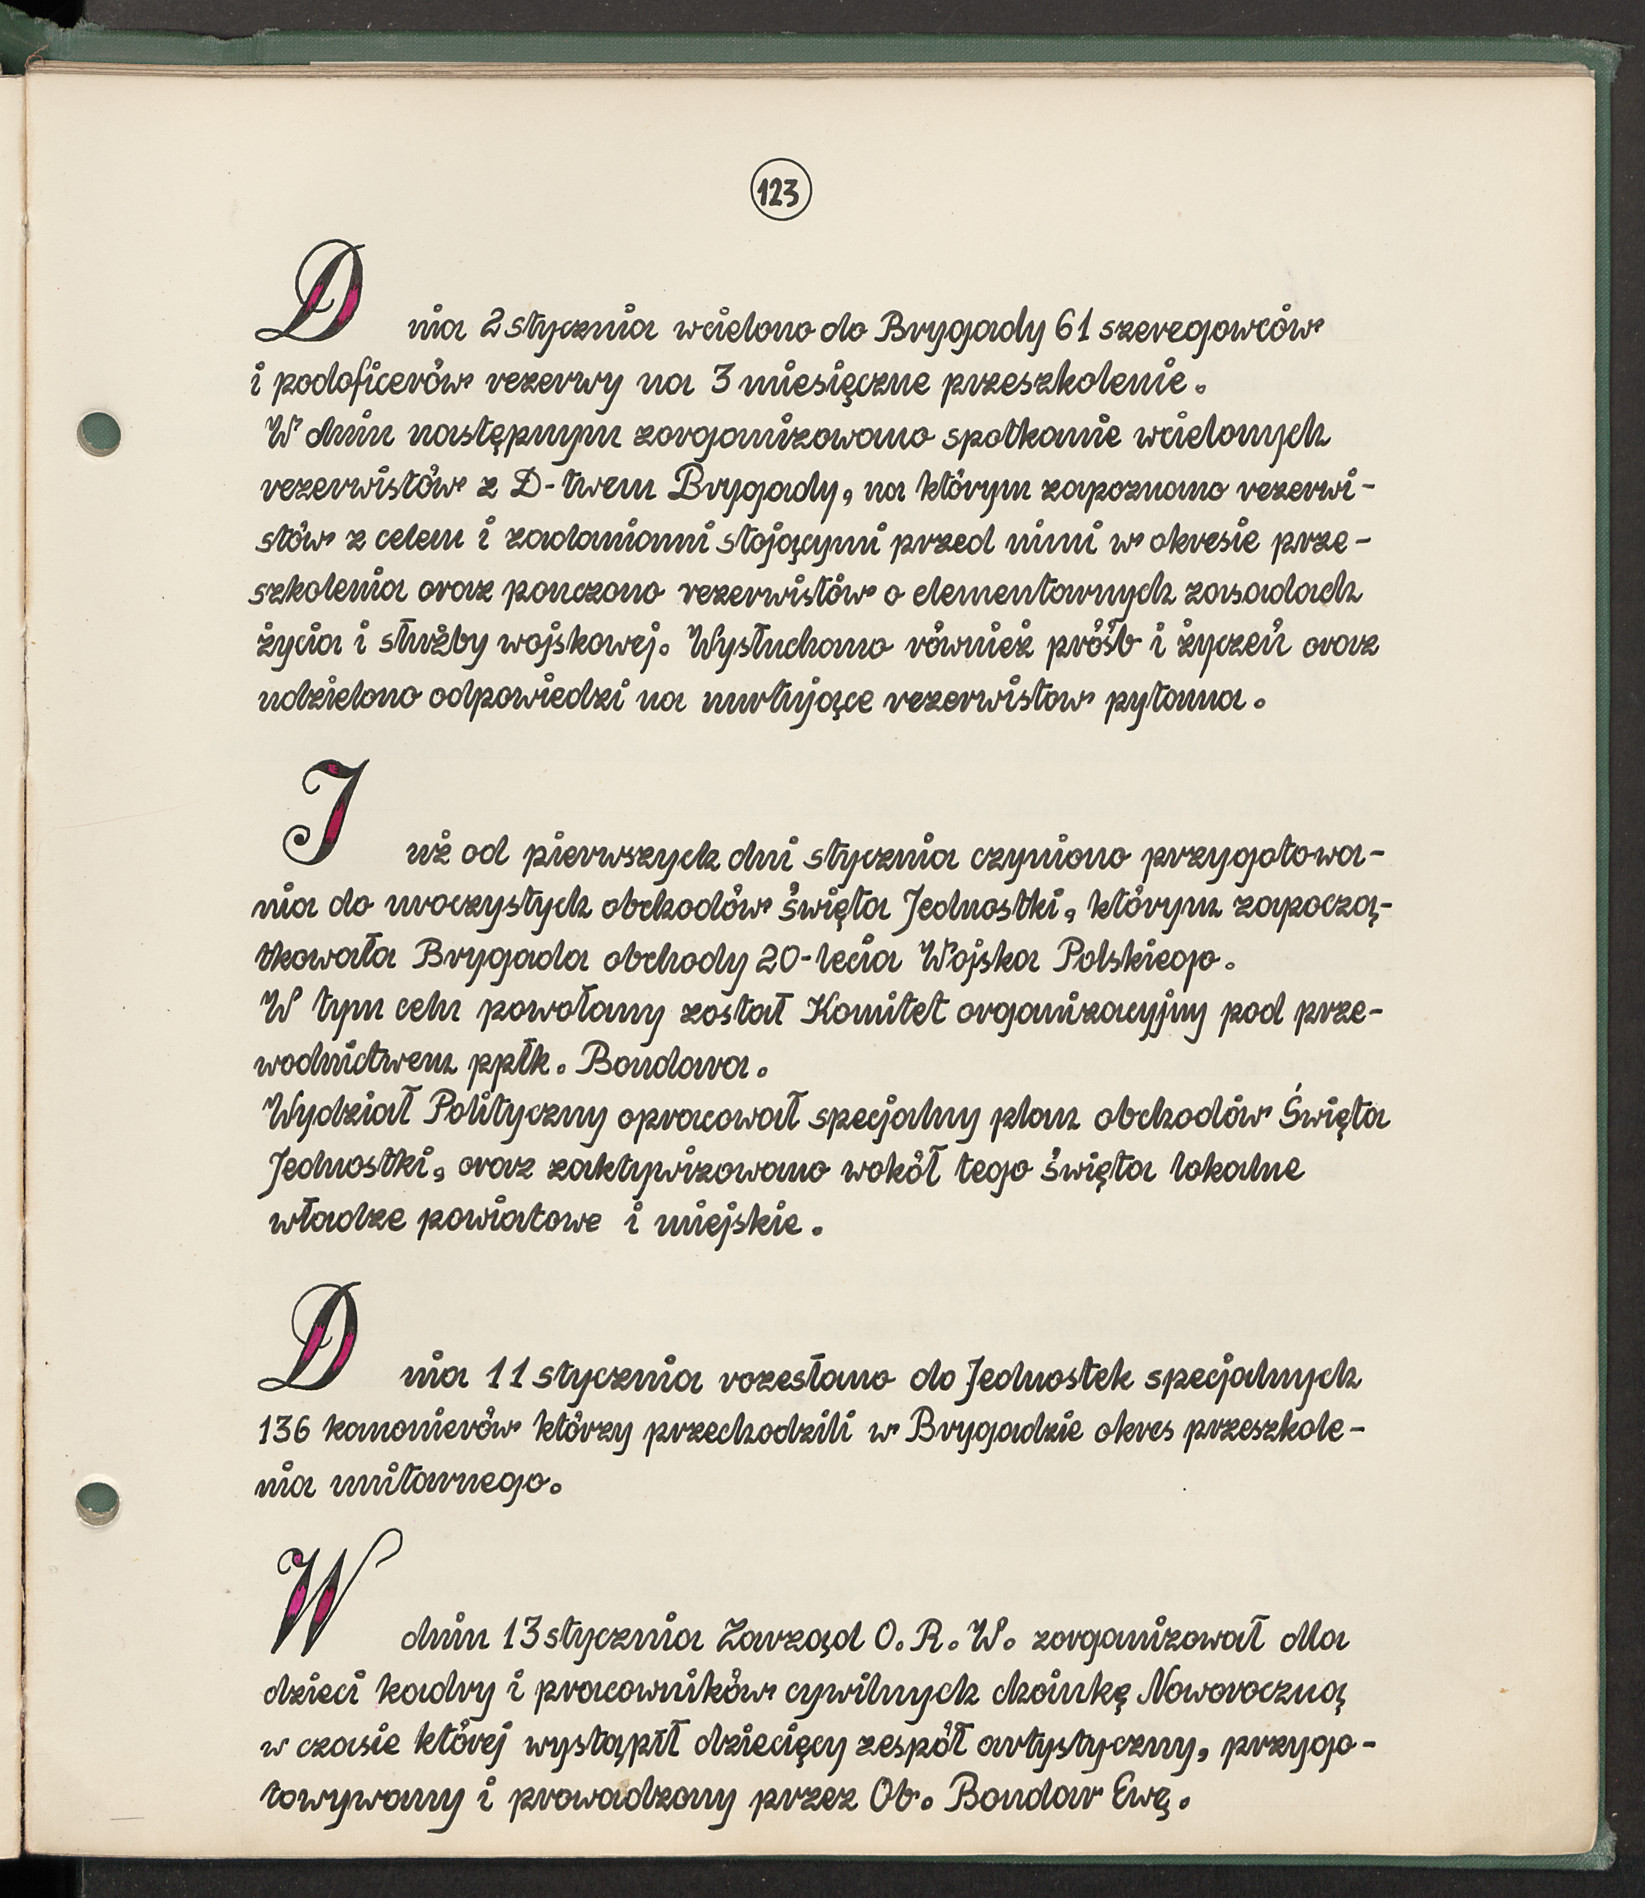 123
Dnia 2 stycznia wcielono do Brygady 61 szeregowców
i podoficerów rezerwy na 3 miesięczne przeszkolenie.
W dniu następnym zorganizowano spotkanie wcielonych
rezerwistów z D-twem Brygady, na którym zapoznano rezerwi-
stów z celem i zadaniami stojącymi przed nimi w okresie prze-
szkolenia oraz pouczono rezerwistów o elementarnych zasadach
życia i służby wojskowej. Wysłuchano również próśb i życzeń oraz
udzielono odpowiedzi na nurtujące rezerwistow pytania.
Już od pierwszych dni stycznia czyniono przygotowa-
nia do uroczystych obchodów święta Jednostki, którym zapoczą-
tkowała Brygada obchody 20-lecia Wojska Polskiego.
W tym celu powołany został Komitet organizacyjny pod prze-
wodnictwem ppłk. Bondara.
Wydział Polityczny opracował specjalny plan obchodów Święta
Jednostki, oraz zaktywizowano wokół tego święta lokalne
władze powiatowe i miejskie.
Dnia 11 stycznia rozesłano do Jednostek specjalnych
136 kanonierów którzy przechodzili w Brygadzie okres przeszkole-
nia unitarnego.
W dniu 13 stycznia Zarząd O.R.W. zorganizował dla
dzieci kadry i pracowników cywilnych choinkę Noworoczną
w czasie której wystąpił dziecięcy zespół artystyczny, przygo-
towywany i prowadzony przez Ob. Bondar Ewę.